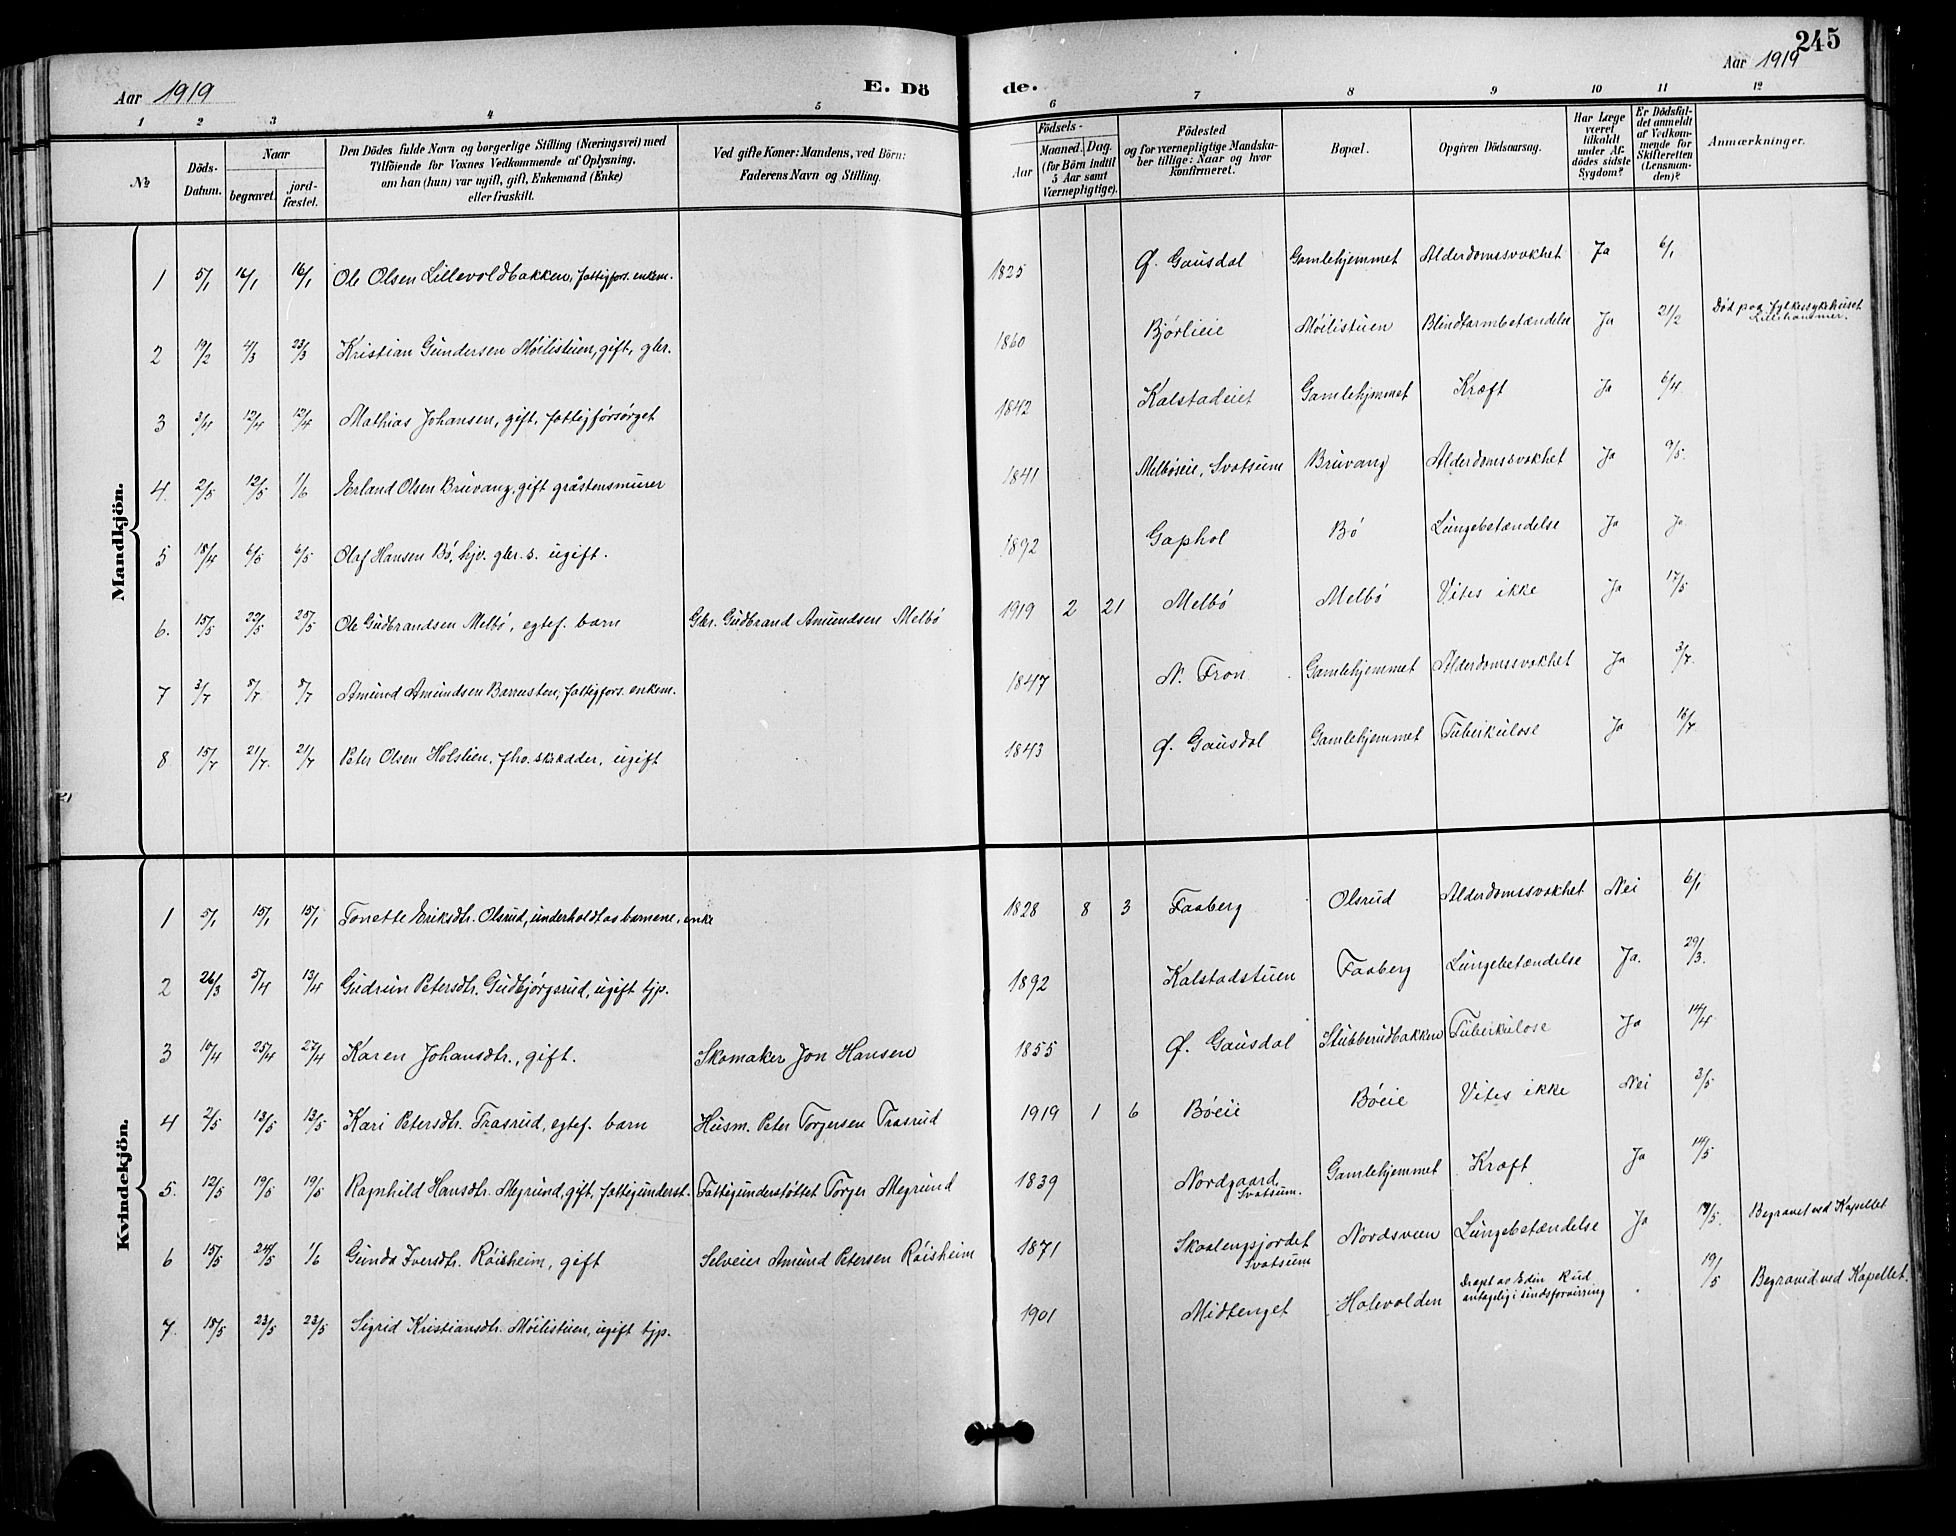 245
Aar 1919
E. Dö
de.
Aar 1919
1 2 3 4 5 6 7 8 9 10 11 12
№
Döds-Datum.
Naar
begravet.
jord-fæstet.
Den Dödes fulde Navn og borgerlige Stilling (Næringsvei) med
Tilföiende for Voxnes Vedkommende af Oplysning,
om han (hun) var ugift, gift, Enkemand (Enke)
eller fraskilt.
Ved gifte Koner: Mandens, ved Börn:
Faderens Navn og Stilling.
Födsels-
Aar
Maaned. Dag.
(for Börn indtil
5 Aar samt
Værnepligtige).
Födested
og for værnepligtige Mandska-
ber tillige: Naar og hvor
konfirmeret.
Bopæl.
Opgiven Dödsaarsag.
Har Læge
været
tilkaldt
under Af-
dödes sidste
Sygdom?
Er Dödsfal-
det anmeldt
af Vedkom-
mende for
Skifteretten
(Lensman-
den)?
Anmærkninger.
Mandkjön.
1 5/1 16/1 16/1 Ole Olsen Lillevoldbakken, fattigfors. enkem. 1825 Ø. Gausdal Gamlehjemmet Alderdomssvakhet Ja 6/1
2 19/2 4/3 23/3 Kristian Gundersen Möilistuen, gift, gbr. 1860 Bjørlieie Möilistuen Blindtarmbetændelse Ja 21/2 Död paa fylkessykehuset Lillehammer.
3 3/4 12/4 12/4 Mathias Johansen, gift, fattigforsørget 1842 Kalstadeiet Gamlehjemmet Kræft Ja 6/4.
4. 2/5 12/5 1/6 Erland Olsen Bruvang, gift gråstensmurer 1841 Melbøseie, Svatsum Bruvang Alderdomssvakhet Ja 9/5.
5 18/4 6/5 6/5 Olaf Hansen Bø, hjv. gbr. s. ugift. 1892 Gaphol Bø Lungebetændelse Ja Ja
6. 15/5 22/5 25/5 Ole Gudbrandsen Melbø, egtef. barn Gbr. Gudbrand Amundsen Melbø 1919 2 21 Melbø Melbø Vites ikke Ja 17/5
7 3/7 8/7. 8/7. Amund Amundsen Barrusten, fattigfors. enkem. 1847 N. Fron Gamlehjemmet Alderdomssvakhet Ja 3/7.
8 15/7 21/7. 21/7 Peter Olsen Holslien, fhv. skrædder, ugift 1843 Ø. Gausdal Gamlehjemmet Tuberkulose Ja 16/7.
Kvindekjön.
1 5/1 15/1 15/1 Tonette Eriksdtr. Olsrud, underholdt av barnene, enke 1828 8 3 Faaberg Olsrud Alderdomssvakhet Nei 6/1
2 26/3 5/4 13/4 Gudrun Petersdtr. Gudbjørgsrud, ugift tjp. 1892 Kalstadstuen Faaberg Lungebetændelse Ja. 29/3.
3 10/4 25/4 27/4 Karen Johansdtr., gift. Skomaker Jon Hansen 1855 Ø. Gausdal Stubberudbakken Tuberkulose Ja 14/4
4 2/5 13/5 13/5 Kari Petersdtr. Trasrud, egtef. barn Husm. Peter Torgersen Trasrud 1919 1 6 Bøeie Bøeie Vites ikke Nei 3/5
5. 12/5 19/5 19/5 Ragnhild Hansdtr. Megrund, gift, fattigunderst. Fattigunderstøttet Torger Megrund 1839 Nordgaard, Svatsum. Gamlehjemmet Kræft Ja 14/5
6 15/5 24/5 1/6 Gunda Iversdtr. Røisheim, gift Selveier Amund Petersen Røisheim 1871 Skaalengsjordet Svatsum Nordsveen Lungebetændelse Ja 19/5. Begravet ved Kapellet
7. 18/5 23/5 23/5 Sigrid Kristiansdtr. Möilistuen, ugift tjp. 1901 Midtenget Holevolden Dræpt av Edin Rud antagelig i sindsforvirring 19/5 Begravid ved Kapellet.